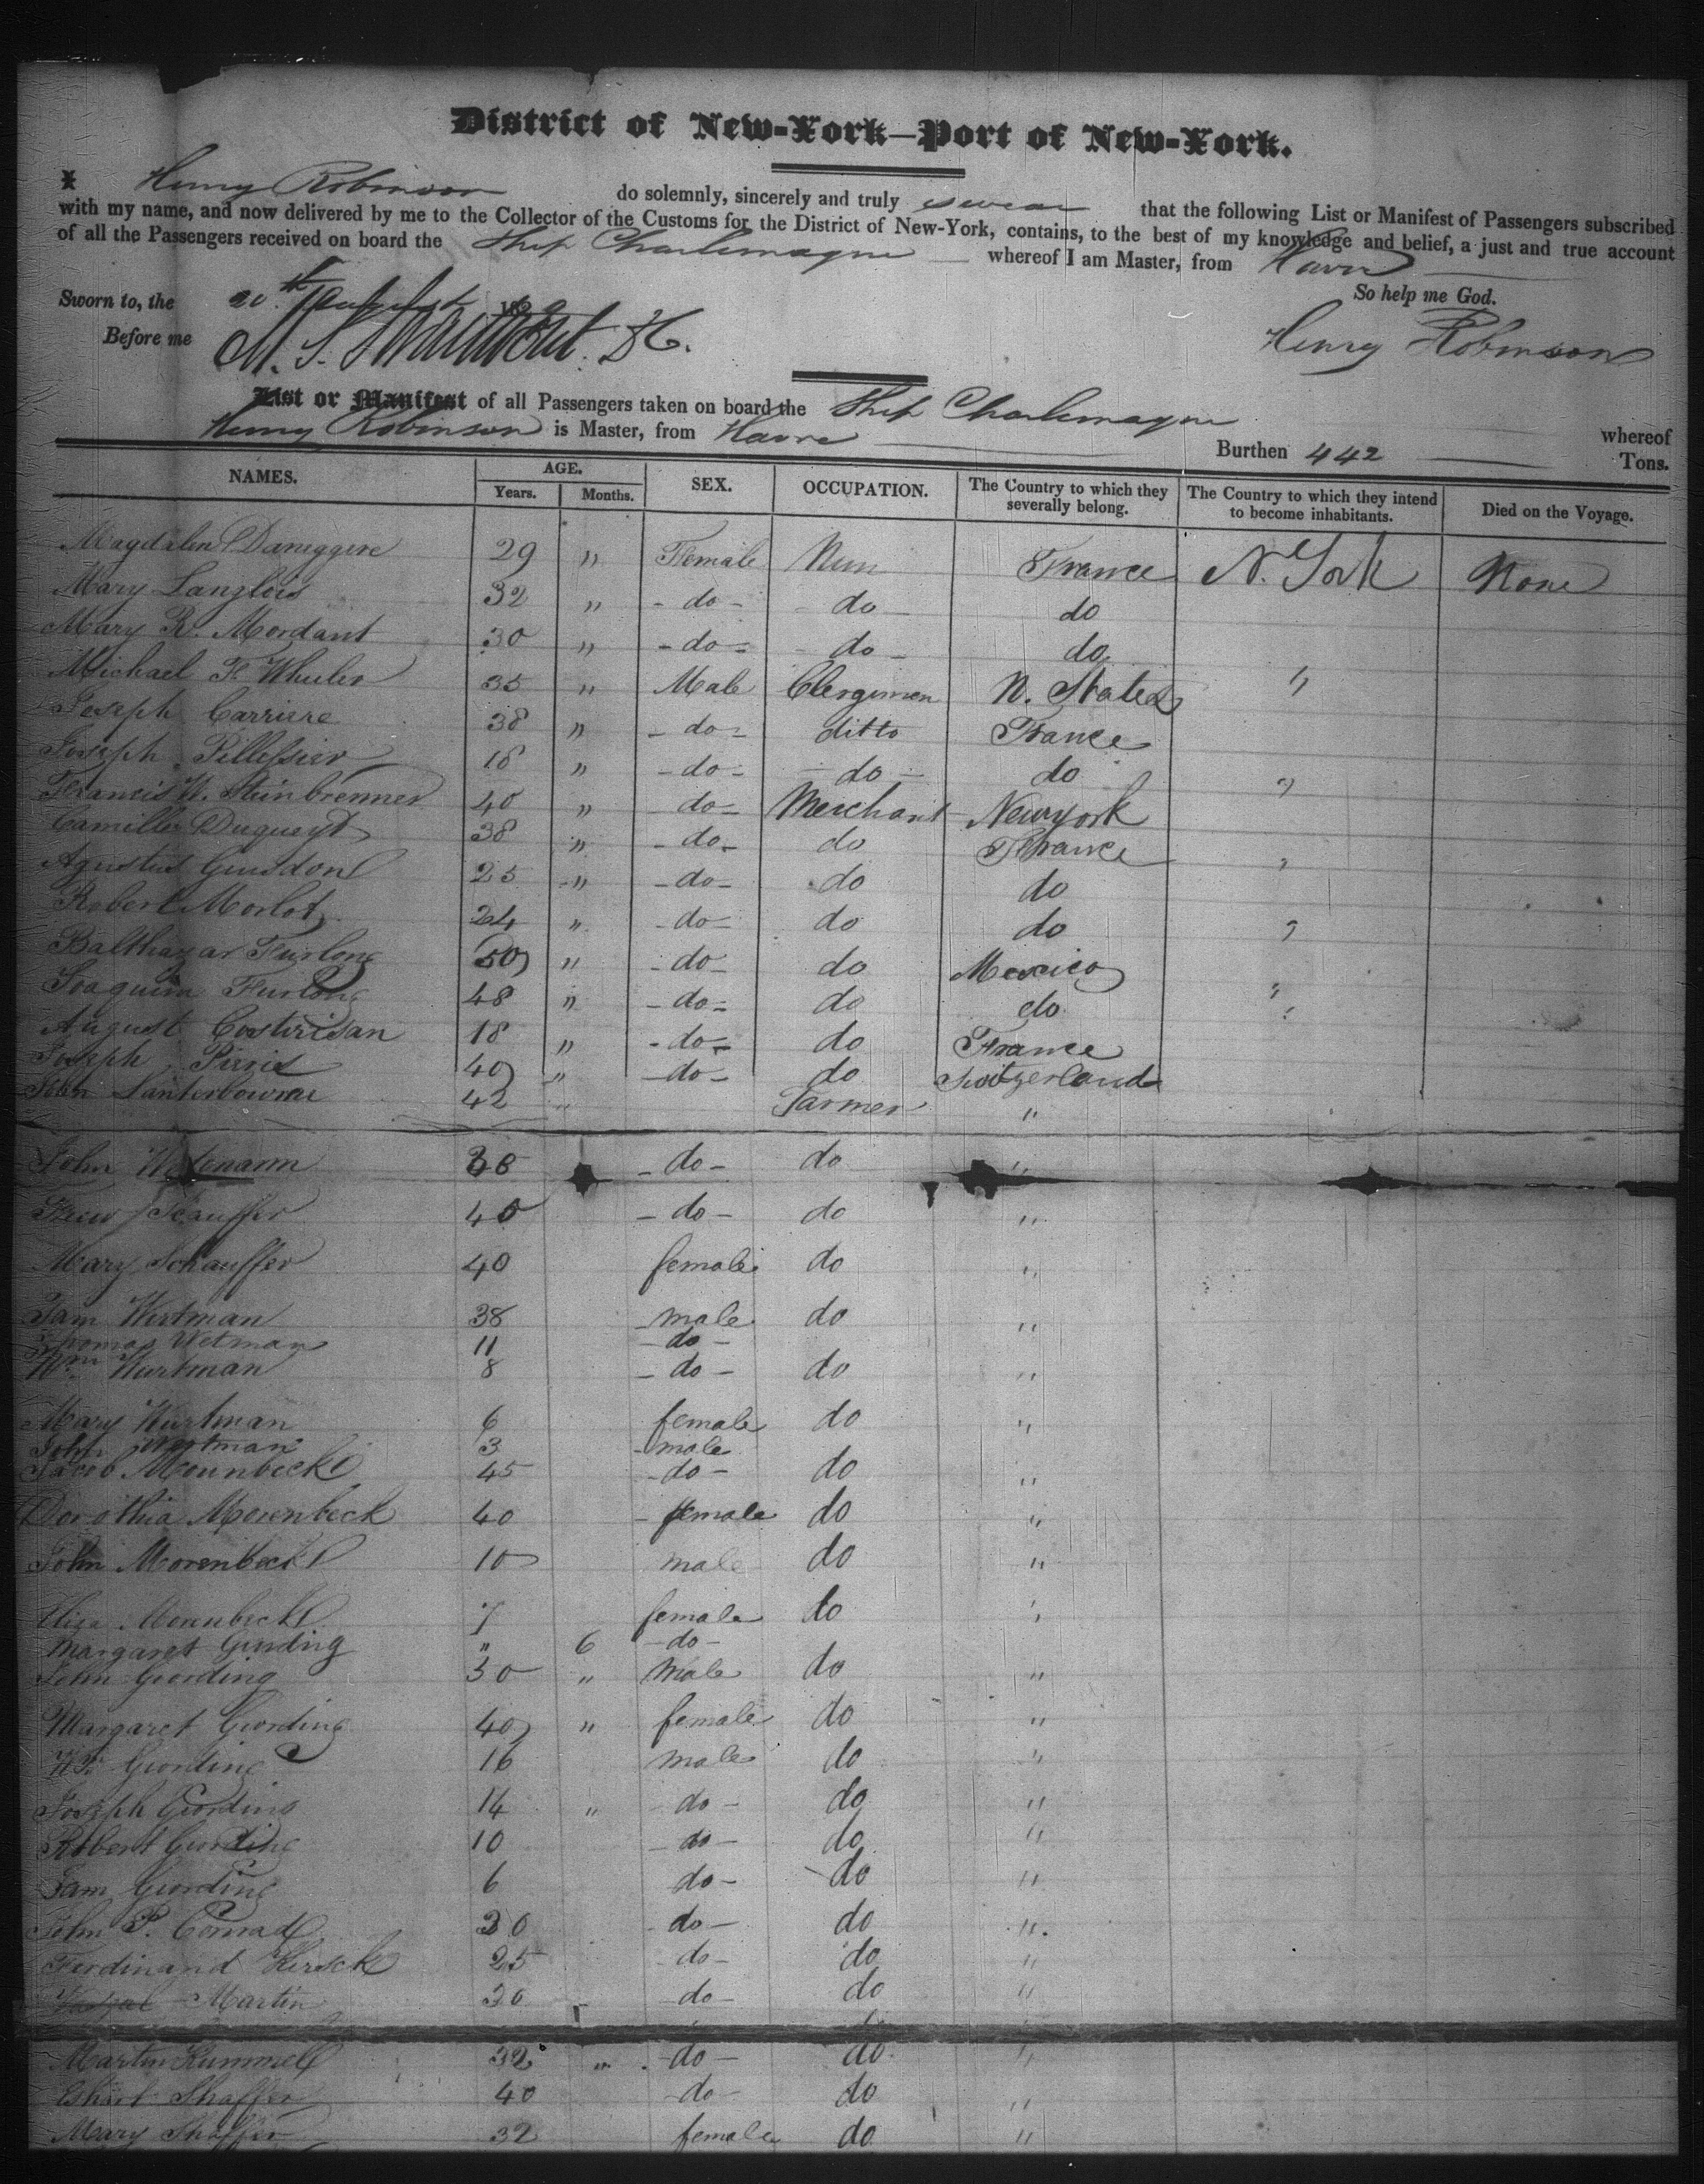 District of New-York—Port of New-York.
I Henry Robinson do solemnly, sincerely and truly swear that the following List or Manifest of Passengers subscribed
with my name, and now delivered by me to the Collector of the Customs for the District of New-York, contains, to the best of my knowledge and belief, a just and true account
of all the Passengers received on board the Ship Charlemagne whereof I am Master, from Havre
So help me God.
Sworn to, the 20th August 1829
Before me
Henry Robinson
List or Manifest of all Passengers taken on board the Ship Charlemagne whereof
Henry Robinson is Master, from Havre Burthen 442 Tons.
NAMES. AGE. Years. Months. SEX. OCCUPATION. The Country to which they severally belong. The Country to which they intend to become inhabitants. Died on the Voyage.
Magdalen Daneggere 29 " Female Nun France N. York None
Mary Langlois 32 " - do - do - do
Mary R. Mordant 30 " - do - - do - do
Michael F. Wheeler 35 " Male Clergimen N. States "
Joseph Carriere 38 " - do - ditto France
Joseph Pillessier 18 " - do - - do - do "
Francis W. Steinbrenner 40 " - do - Merchant Newyork
Camiller Duqueyt 38 " - do - do France "
Agustus Guisdon 25 " - do - do do
Robert Morlot 24 " - do - do do "
Balthazar Furlong 50 " - do - do Mexico
Joaquim Furlong 48 " - do - do do "
August Costerisan 18 " - do - do France
Joseph Pierid 40 " - do - do Switzerland
John Lanterbowrar 42 " Farmer "
John 36 - do - do "
Scauffer 40 - do - do "
Mary Schauffer 40 female do "
Sam Wertman 38 male do "
Thomas Wetman 11 - do -
Wm. Wurtman 8 - do - do "
Mary Wurtman 6 female do "
John Wertman 3 male
Jacob Mounbeck 45 - do - do "
Dorothia Morenbeck 40 - female do "
John Morenbeck 10 male do "
Eliza Morenbeck 7 female do "
Margaret Gurding " 6 - do -
John Gording 30 " Male do "
Margaret Gronding 40 " female do "
Wm. Gronding 16 male do "
Joseph Gronding 14 " - do - do "
Robert Gurnding 10 - do - do "
Sam Gronding 6 do - do "
John P. Conrad 30 - do - do "
Ferdinand Hersck 25 - do - do "
Martin 30 - do - do "
Martin Kummell 32 " - do - do "
Shaffer 40 - do - do "
Mary Shaffer 32 female do "